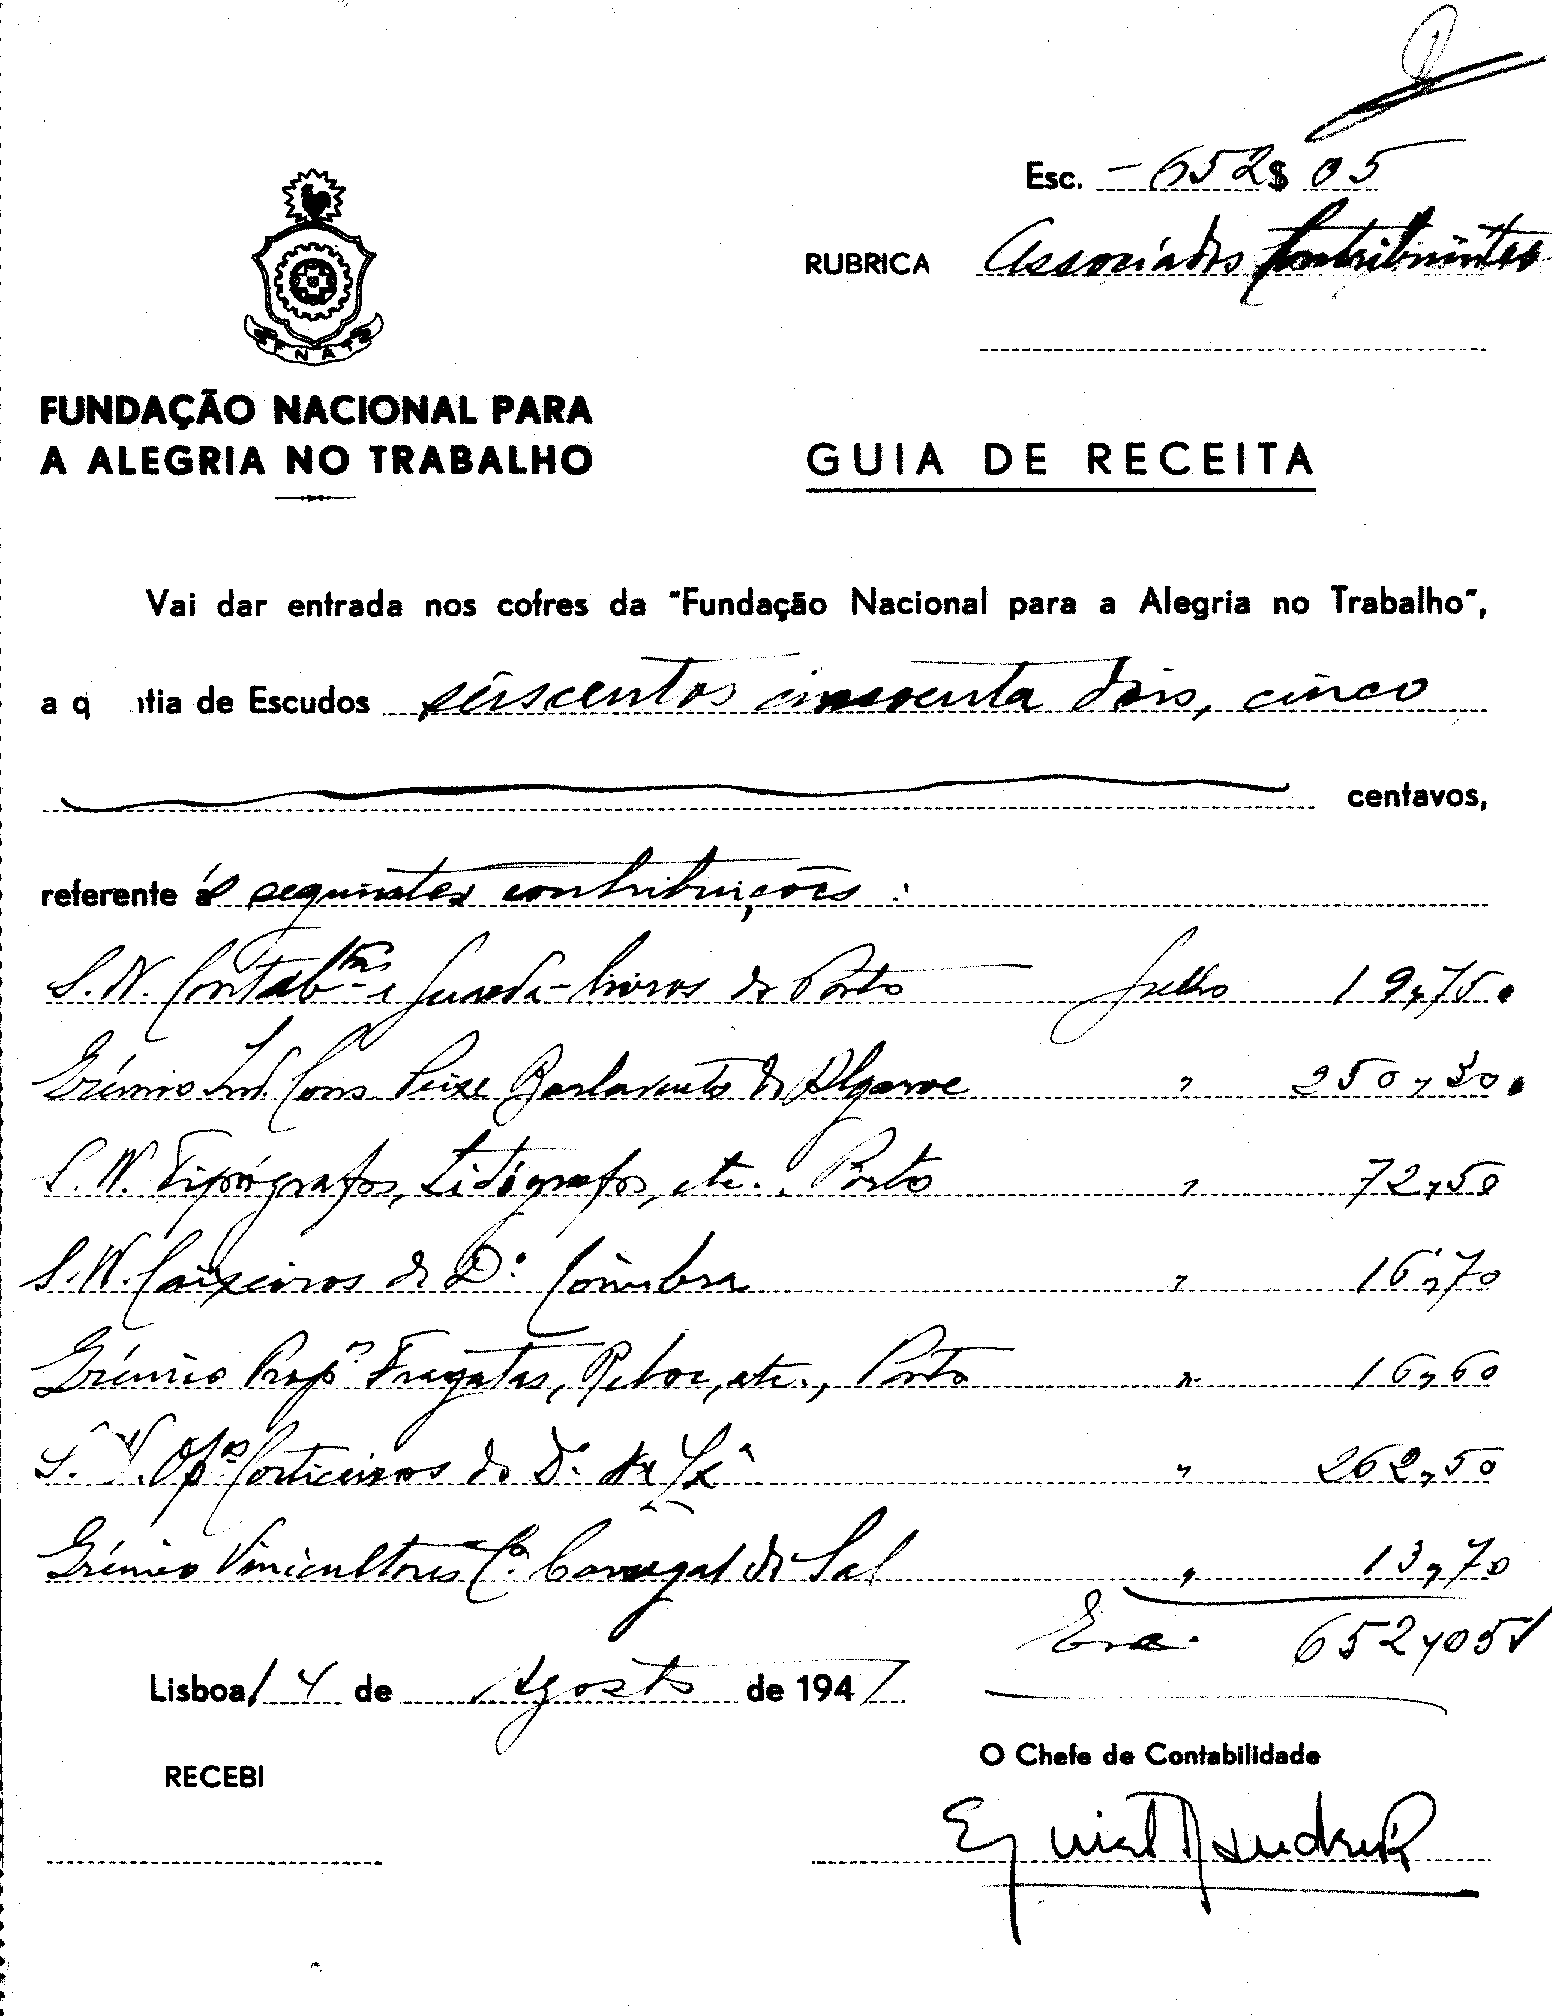 Esc. - 652$05
RUBRICA Associados Contribuintes
F N A T
FUNDAÇÃO NACIONAL PARA
A ALEGRIA NO TRABALHO
GUIA DE RECEITA
Vai dar entrada nos cofres da "Fundação Nacional para a Alegria no Trabalho",
a q ntia de Escudos seiscentos cincoenta dois, cinco
centavos,
referente ás seguintes contribuições :
S.N. Contabtas e Guarda-livros do Porto Julho 19,75
Grémio Ind. Cons. Peixe Barlavento do Algarve " 250,30
S.N. Tipógrafos, Litógrafos, etc., Porto " 72,50
S.N. Caixeiros do D.º Coimbra " 16,70
Grémio Propº Fragatas, Reboc, etc., Porto " 16,60
S.N. Opºs Corticeiros do D.º de Lxª " 262,50
Grémio Vinicultores C.º Carregal do Sal " 13,70
Esc. 652,05
Lisboa 14 de Agosto de 1947
O Chefe de Contabilidade
RECEBI